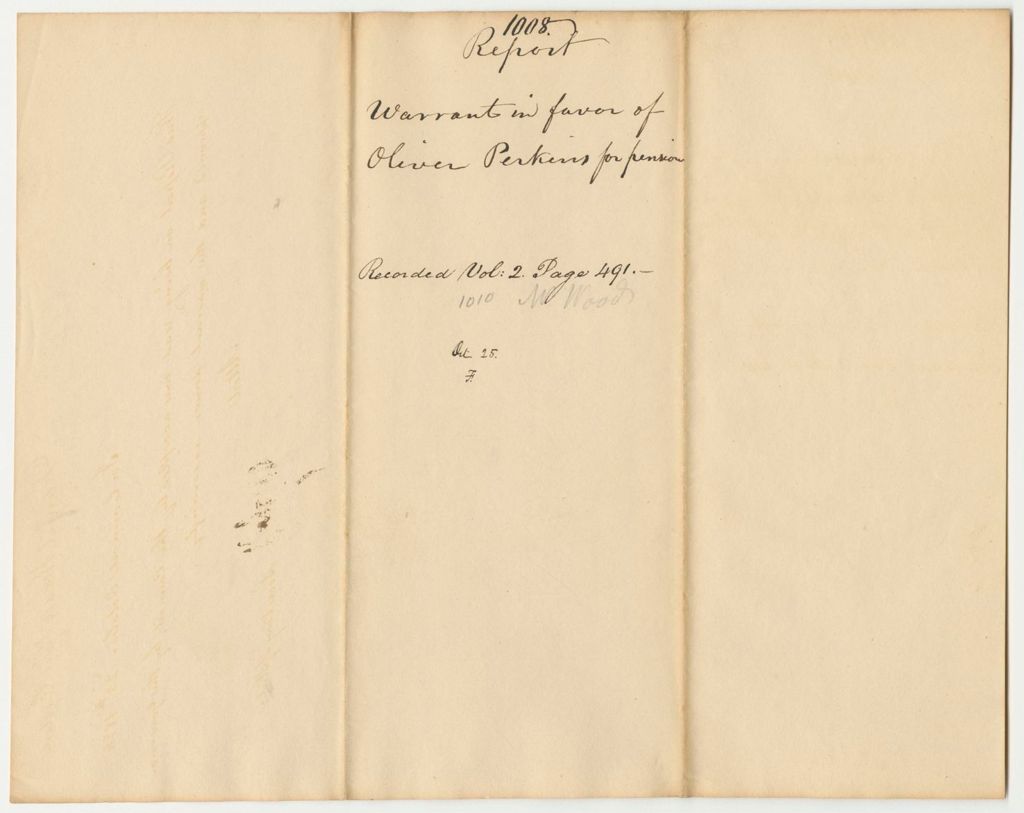 1008.
Report
Warrant in favor of
Oliver Perkins for pension
Recorded Vol: 2. Page 491.—
1010 Mr Wood
Oct 25.
F.